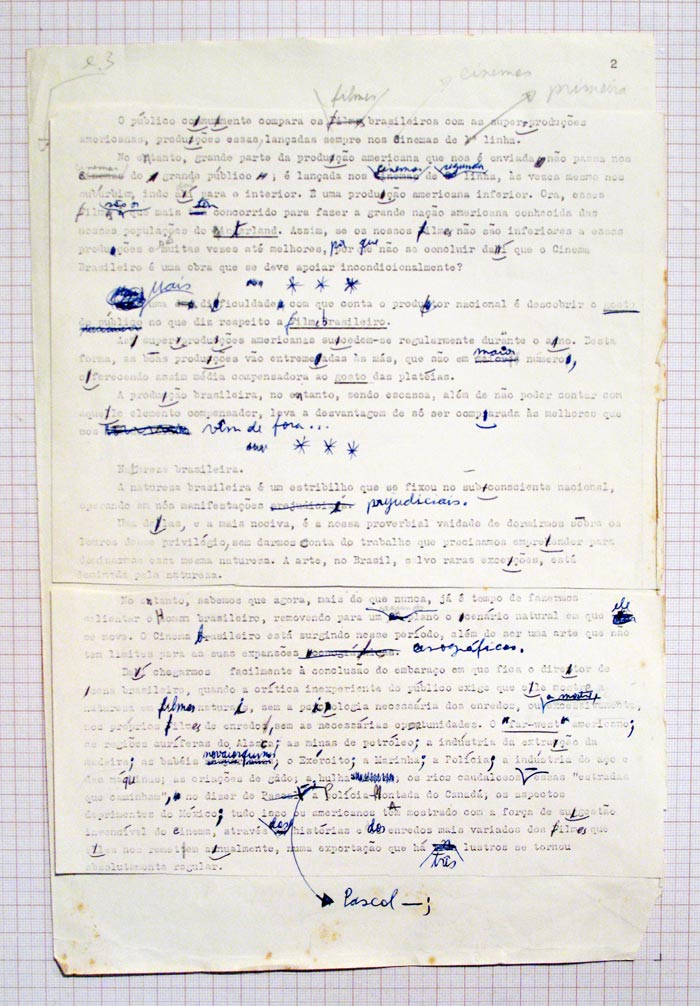 e.3
2
filmes
cinemas
primeira
O público comumente compara os Films brasileiros com as super-produções
americanas, produções essas, lançadas sempre nos Cinemas de 1ª linha.
No entanto, grande parte da produção americana que nos é enviada, não passa nos
cinemas
Cinemas do grande público; é lançada nos cinemas segunda linha, às vezes mesmo nos
indo para o interior. É uma produção americana inferior. Ora, esses
são os têm
que mais concorrido para fazer a grande nação americana conhecida das
nossas populações do hinterland. Assim, se os nossos filmes não são inferiores a essas
produções e muitas vezes até melhores, por que não se concluir daí que o Cinema
Brasileiro é uma obra que se deve apoiar incondicionalmente?
* * *
Mais
uma dificuldade com que conta o produtor nacional é descobrir o gosto
do público no que diz respeito a film brasileiro.
As super-produções americanas sucedem-se regularmente durante o ano. Desta
forma, as boas produções vão entremeadas às más, que são em maior número,
oferecendo assim média compensadora ao gosto das platéias.
A produção brasileira, no entanto, sendo escassa, além de não poder contar com
aquele elemento compensador, leva a desvantagem de só ser comparada às melhores que
nos vêm de fora...
* * *
Natureza brasileira.
A natureza brasileira é um estribilho que se fixou no sub-consciente nacional,
operando em nós manifestações prejudiciais.
Uma delas, e a mais nociva, é a nossa proverbial vaidade de dormirmos sôbre os
louros desse privilégio, sem darmos conta do trabalho que precisamos empreender para
dominarmos essa mesma natureza. A arte, no Brasil, salvo raras exceções, está
dominada pela natureza.
No entanto, sabemos que agora, mais do que nunca, já é tempo de fazermos
salientar o Homem brasileiro, removendo para um plano o cenário natural em que ele
se move. O Cinema brasileiro está surgindo nesse período, além de ser uma arte que não
tem limites para as suas expansões cenográficas.
Daí chegarmos facilmente à conclusão do embaraço em que fica o diretor de
cena brasileiro, quando a crítica inexperiente do público exige que ele
a mostre
filmes naturais, sem a psicologia necessária dos enredos, ou, excessivamente,
nos próprios filmes de enredos, sem as necessárias oportunidades. O "far-west" americano;
as regiões auríferas do Alasca; as minas de petróleo; a indústria da extração da
madeira; as babéis; o Exército; a Marinha; a Polícia; a indústria do aço e
das máquinas; as criações de gado; a hulha os rios caudalosos, essas "estradas
que caminham", no dizer de Pascal; a Polícia Montada do Canadá, os aspectos
deprimentes do México; tudo isso os americanos têm mostrado com a força de sugestão
invencível do Cinema, através das histórias e dos enredos mais variados dos filmes que
eles nos remetem anualmente, numa exportação que há três lustros se tornou
absolutamente regular.
Pascal —;